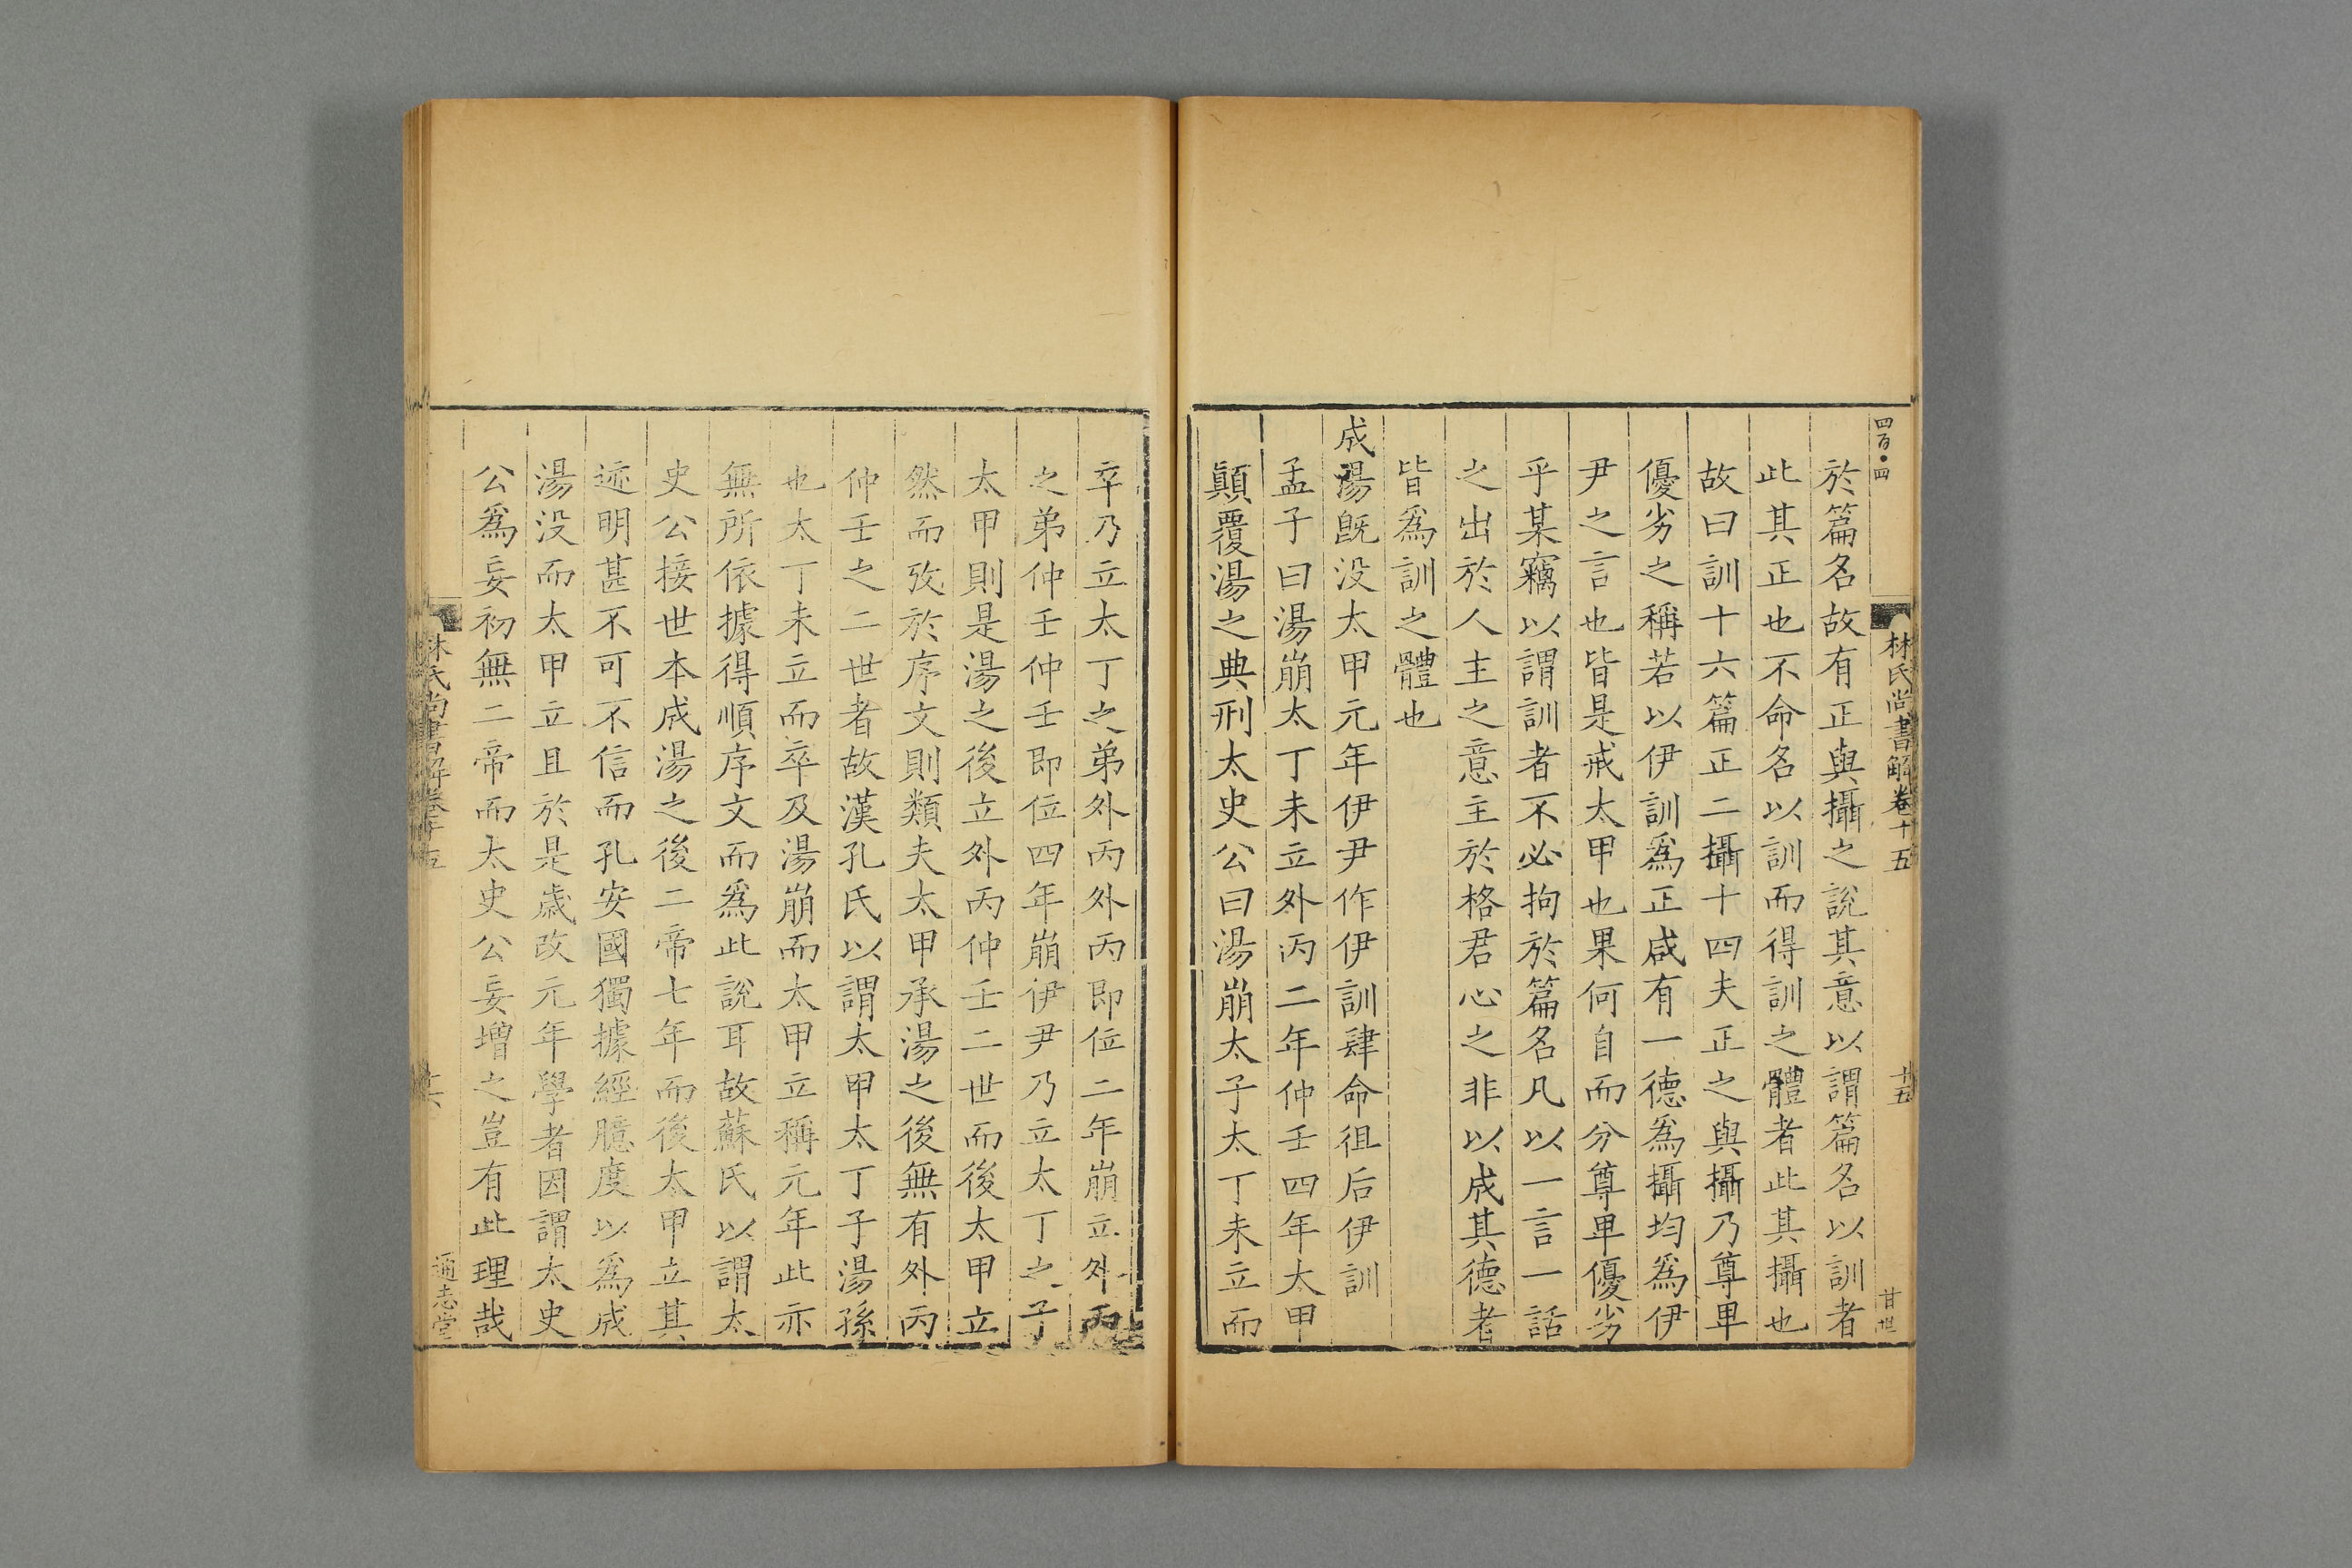 四百四
林氏尚書解卷十五
十五
甘世
於篇名故有正與攝之說其意以謂篇名以訓者
此其正也不命名以訓而得訓之體者此其攝也
故曰訓十六篇正二攝十四夫正之與攝乃尊卑
優劣之稱若以伊訓爲正咸有一德爲攝均爲伊
尹之言也皆是戒太甲也果何自而分尊卑優劣
乎某竊以謂訓者不必拘於篇名凡以一言一話
之出於人主之意主於格君心之非以成其德者
皆爲訓之體也
成湯旣没太甲元年伊尹作伊訓肆命徂后伊訓
孟子曰湯崩太丁未立外丙二年仲壬四年太甲
顛覆湯之典刑太史公曰湯崩太子太丁未立而
卒乃立太丁之弟外丙外丙即位二年崩立外丙
之弟仲壬仲壬即位四年崩伊尹乃立太丁之子
太甲則是湯之後立外丙仲壬二世而後太甲立
然而攷於序文則類夫太甲承湯之後無有外丙
仲壬之二世者故漢孔氏以謂太甲太丁子湯孫
也太丁未立而卒及湯崩而太甲立稱元年此亦
無所依據得順序文而爲此說耳故蘇氏以謂太
史公接世本成湯之後二帝七年而後太甲立其
迹明甚不可不信而孔安國獨據經臆度以爲成
湯没而太甲立且於是歲改元年學者因謂太史
公爲妄初無二帝而太史公妄增之豈有此理哉
林氏尚書解卷十五
通志堂